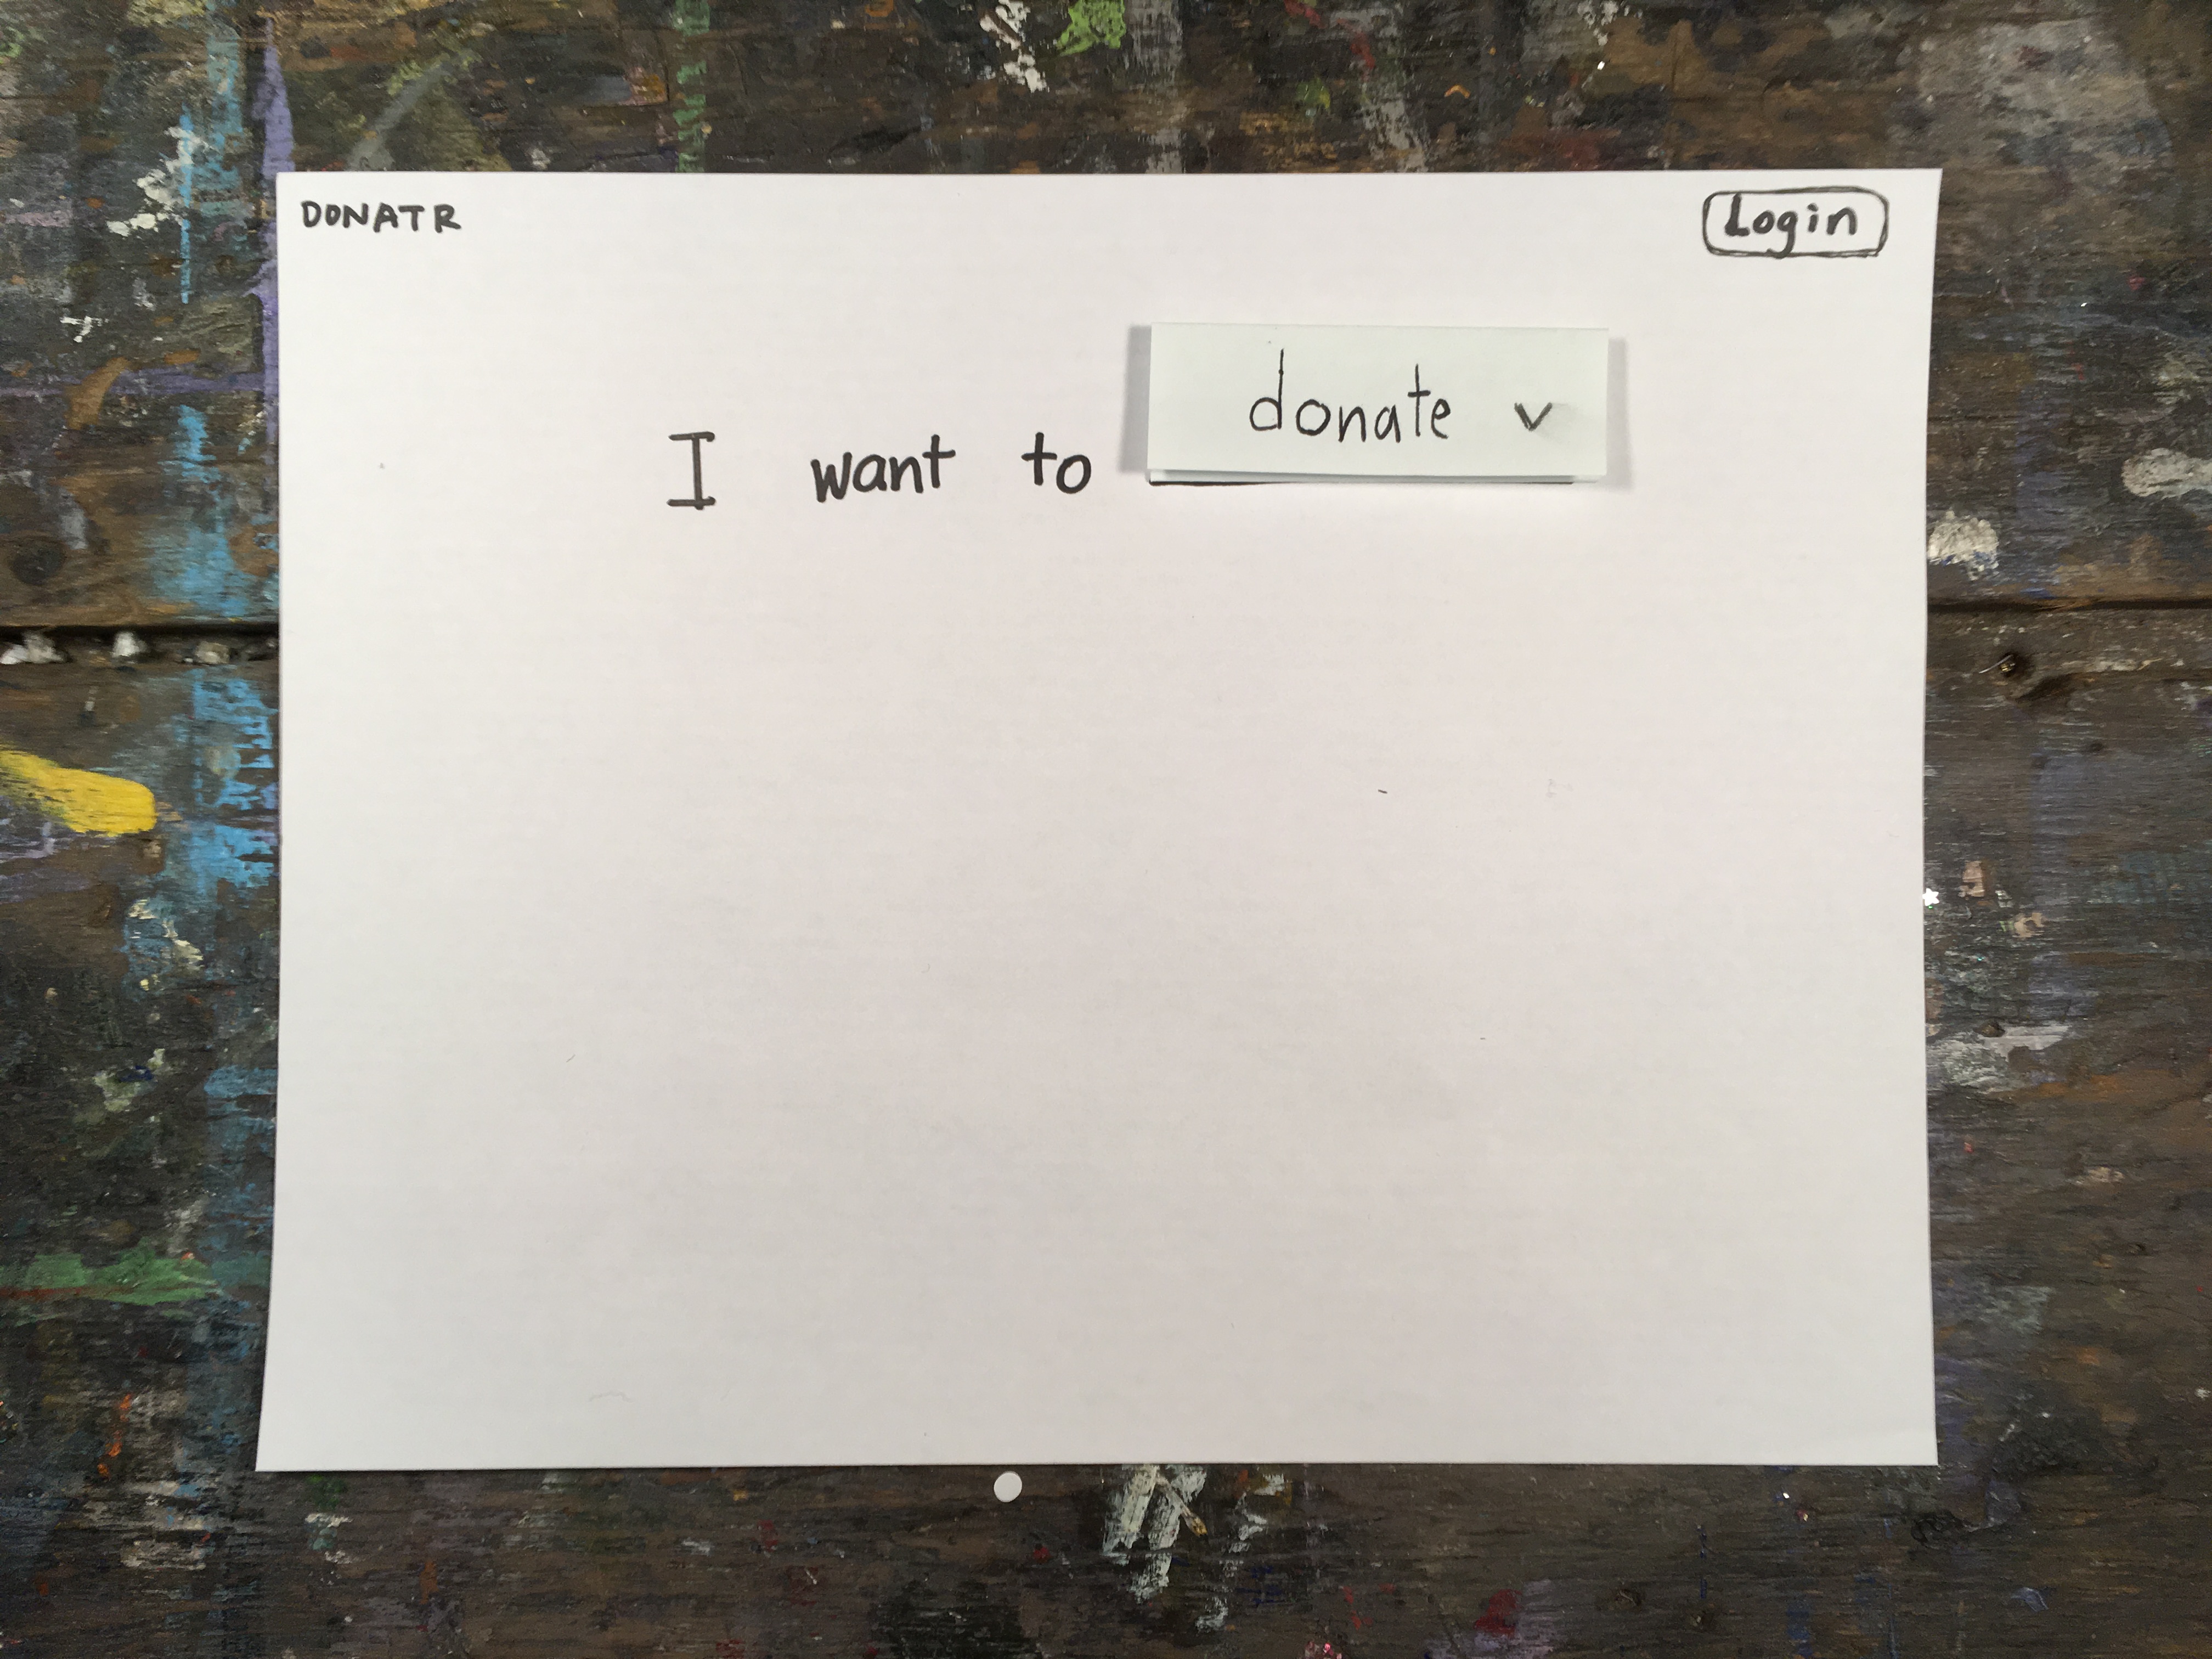 DONATR
Login
I want to donate v